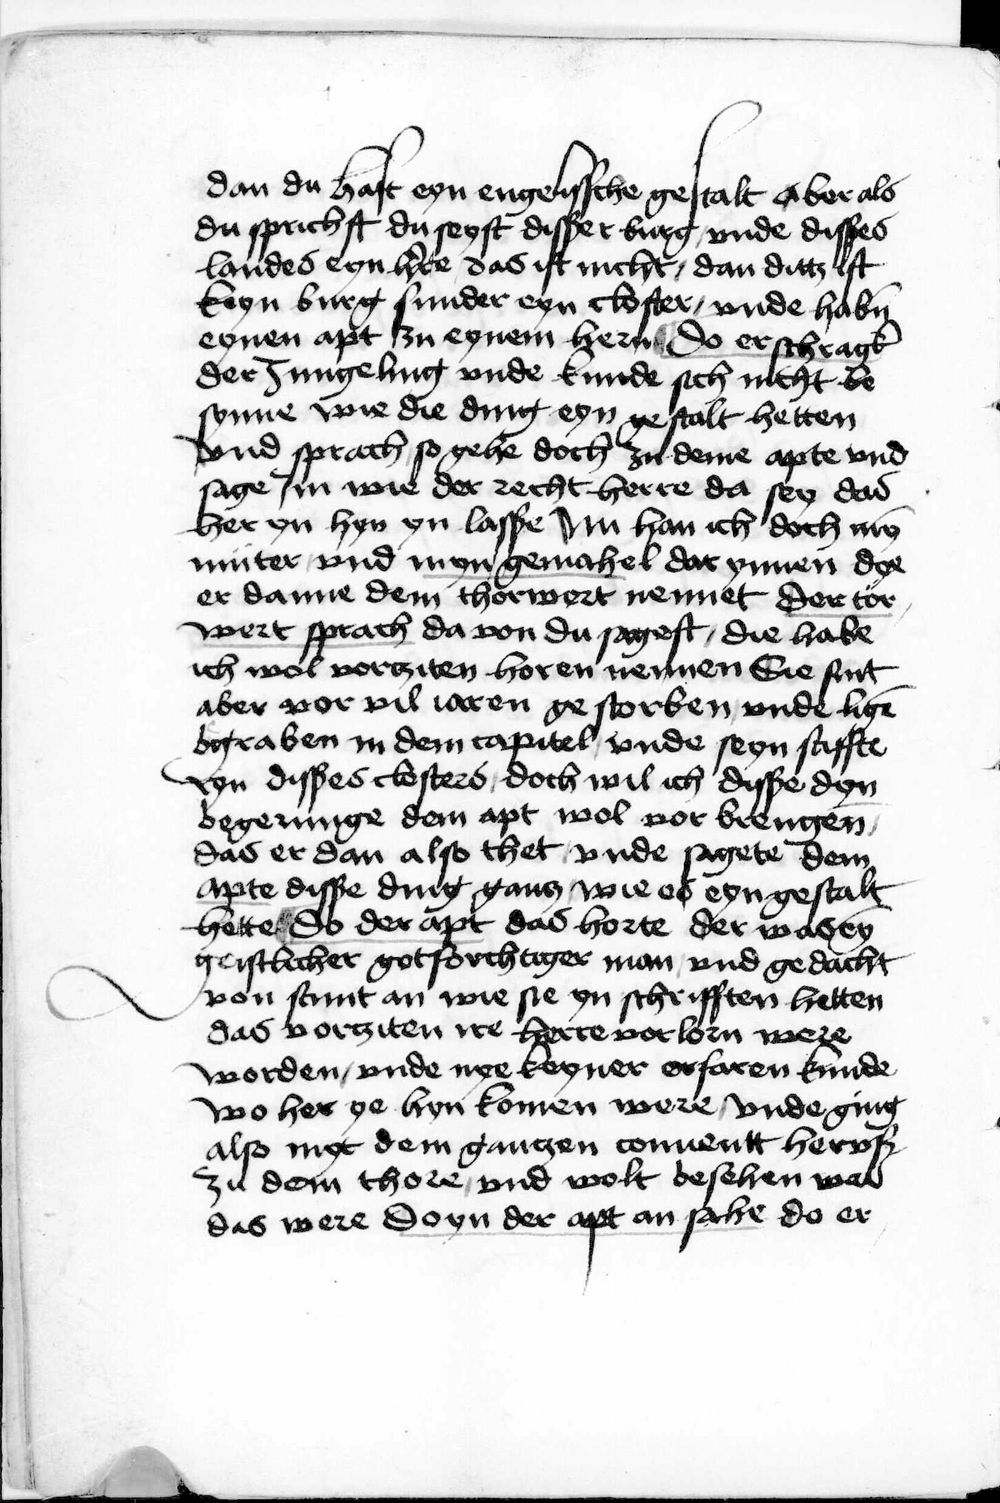 dan du hast eyn engelissche gestalt Aber als
du sprichst du seyst disser burg / vnde disses
landes eyn hẻre das ist nicht / dan ditz ist
keyn burg sunder eyn closter / vnde habn̄
eynen apt zu eynem hern Do erschragk
der Jungeling vnde kunde sich nicht be
synne wie die ding eyn gestalt hetten
Vnd sprach / so gehe doch zu deme apte vnd
sage Im wie der recht herre da sey das
her yn hyn yn lasse Nu han ich doch myn̄
muter / vnd myn gemahel dar ynnen dye
er danne dem thorwert nennet Der tor
wert sprach da von du sagest / die habe
ich wol vorcziten horen nennen Sie sint
aber vor vil iaren gestorben / vnde lige̅
begraben in dem capitel / vnde seyn stiffte
ryn disses closters / doch wil ich disse dyn
begerunge dem apt wol vor brengen /
das er dan also thet / vnde sagete dem
apte disse ding gantz / wie es eyn gestalt
hette Do der apt das horte der was ey̅
geistlicher gotforchtiger man / vnd gedacht
von stunt an wie sie yn schrifften hetten
das vorcziten ire herre vorlorn were
worden / vnde nye keyner erfaren kunde
wo her ye hyn komen were / Vnde ging
also myt dem gantzen conuentt herusz
zu dem thore / vnd wolt besehen was
das were Do yn der apt an sahe do er